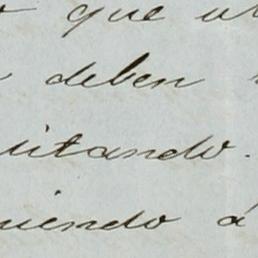 que
deben
itando.
iendo á